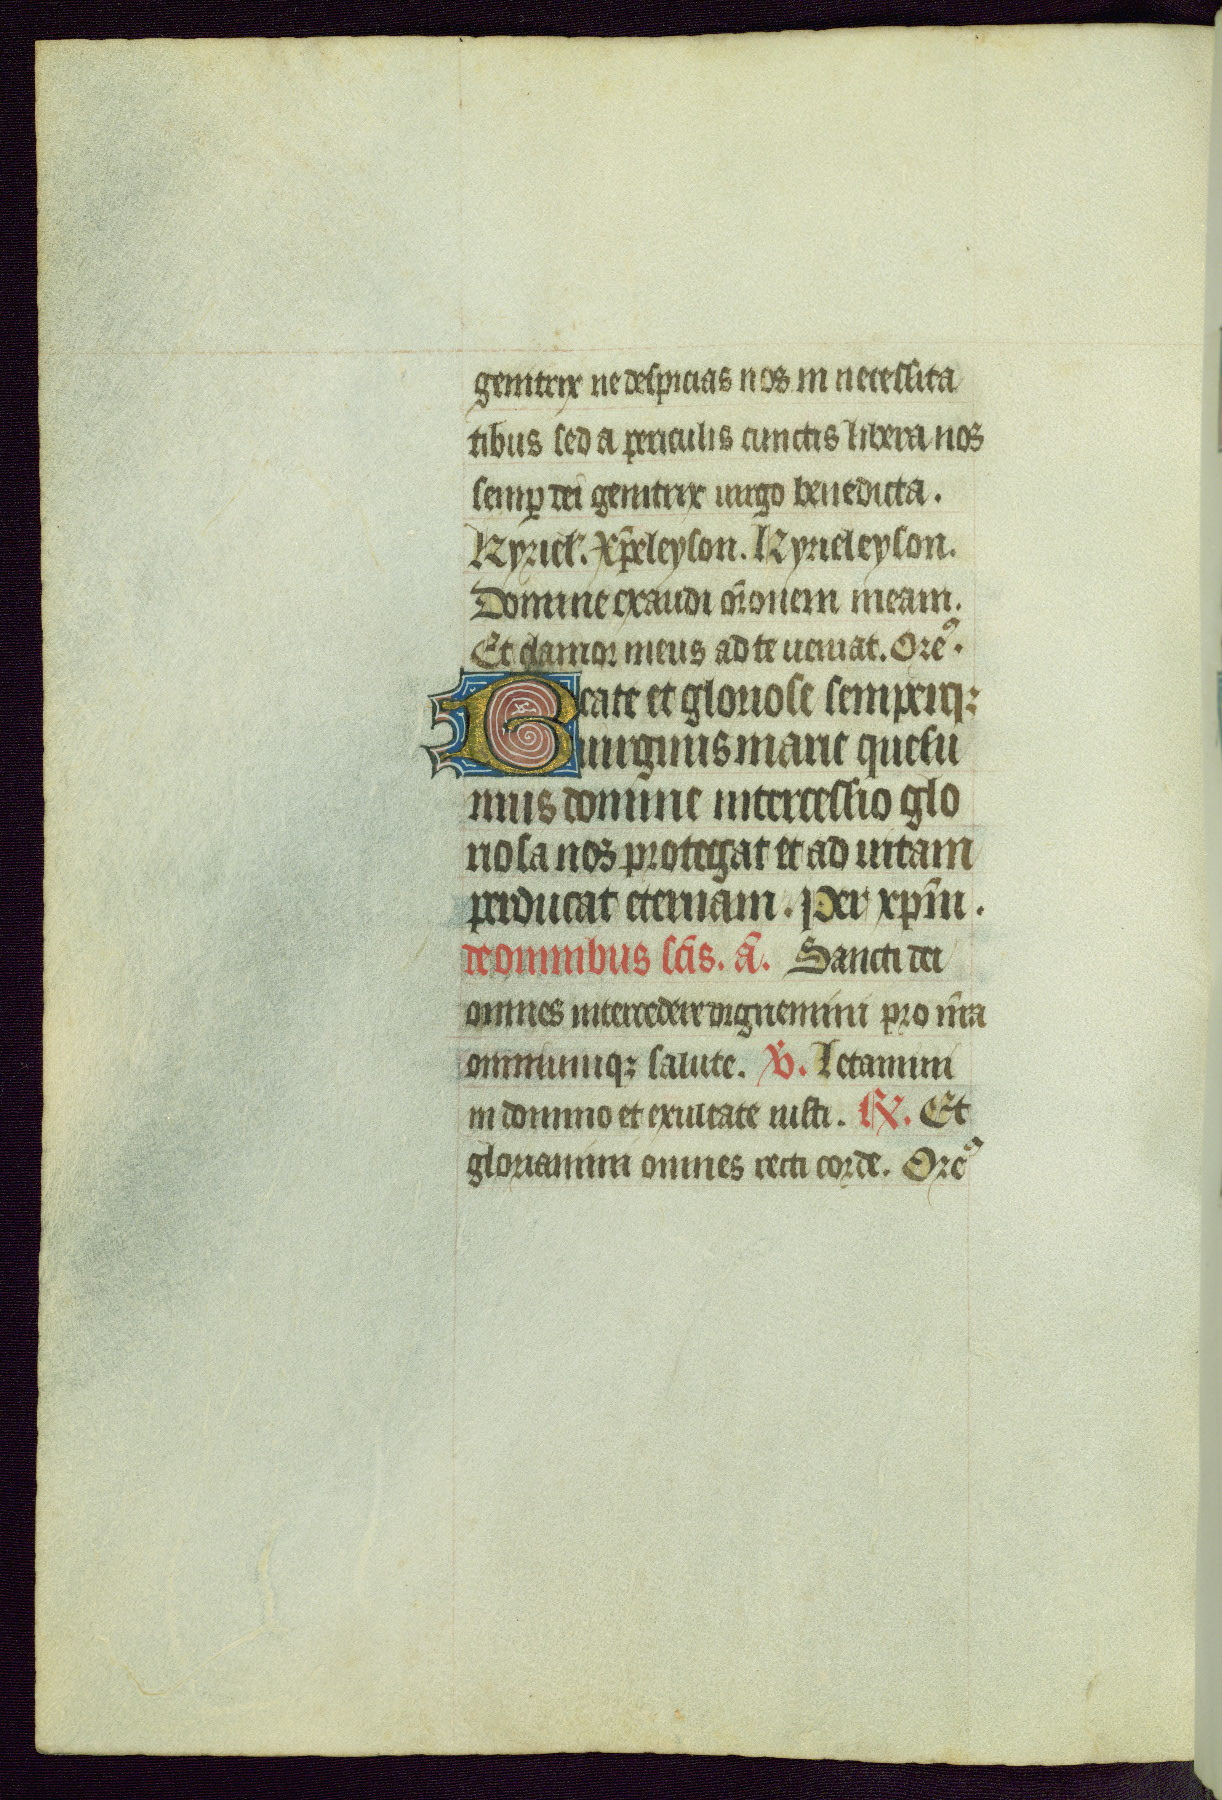 genitrix ne despicias nos in necessita
tibus sed a periculis cunctis libera nos
semp̱ dei genitrix uirgo benedicta.
Kyriel'. Xp̄eleyson. Kyrieleyson.
Domine exaudi or̄onem meam.
Et clamor meus ad te ueniat. Orē9.
Beate et gloriose semperqꝫ
uirginis marie quesu
mus domine intercessio glo
riosa nos protegat et ad uitam
perducat eternam. Per xp̄m.
de omnibus sc̄is. a͞. Sancti dei
omnes intercedere dignemini pro nr̄a
omniumqꝫ salute. ℣. Letamini
in domino et exultate iusti. ℟. Et
gloriamini omnes recti corde. Orē9